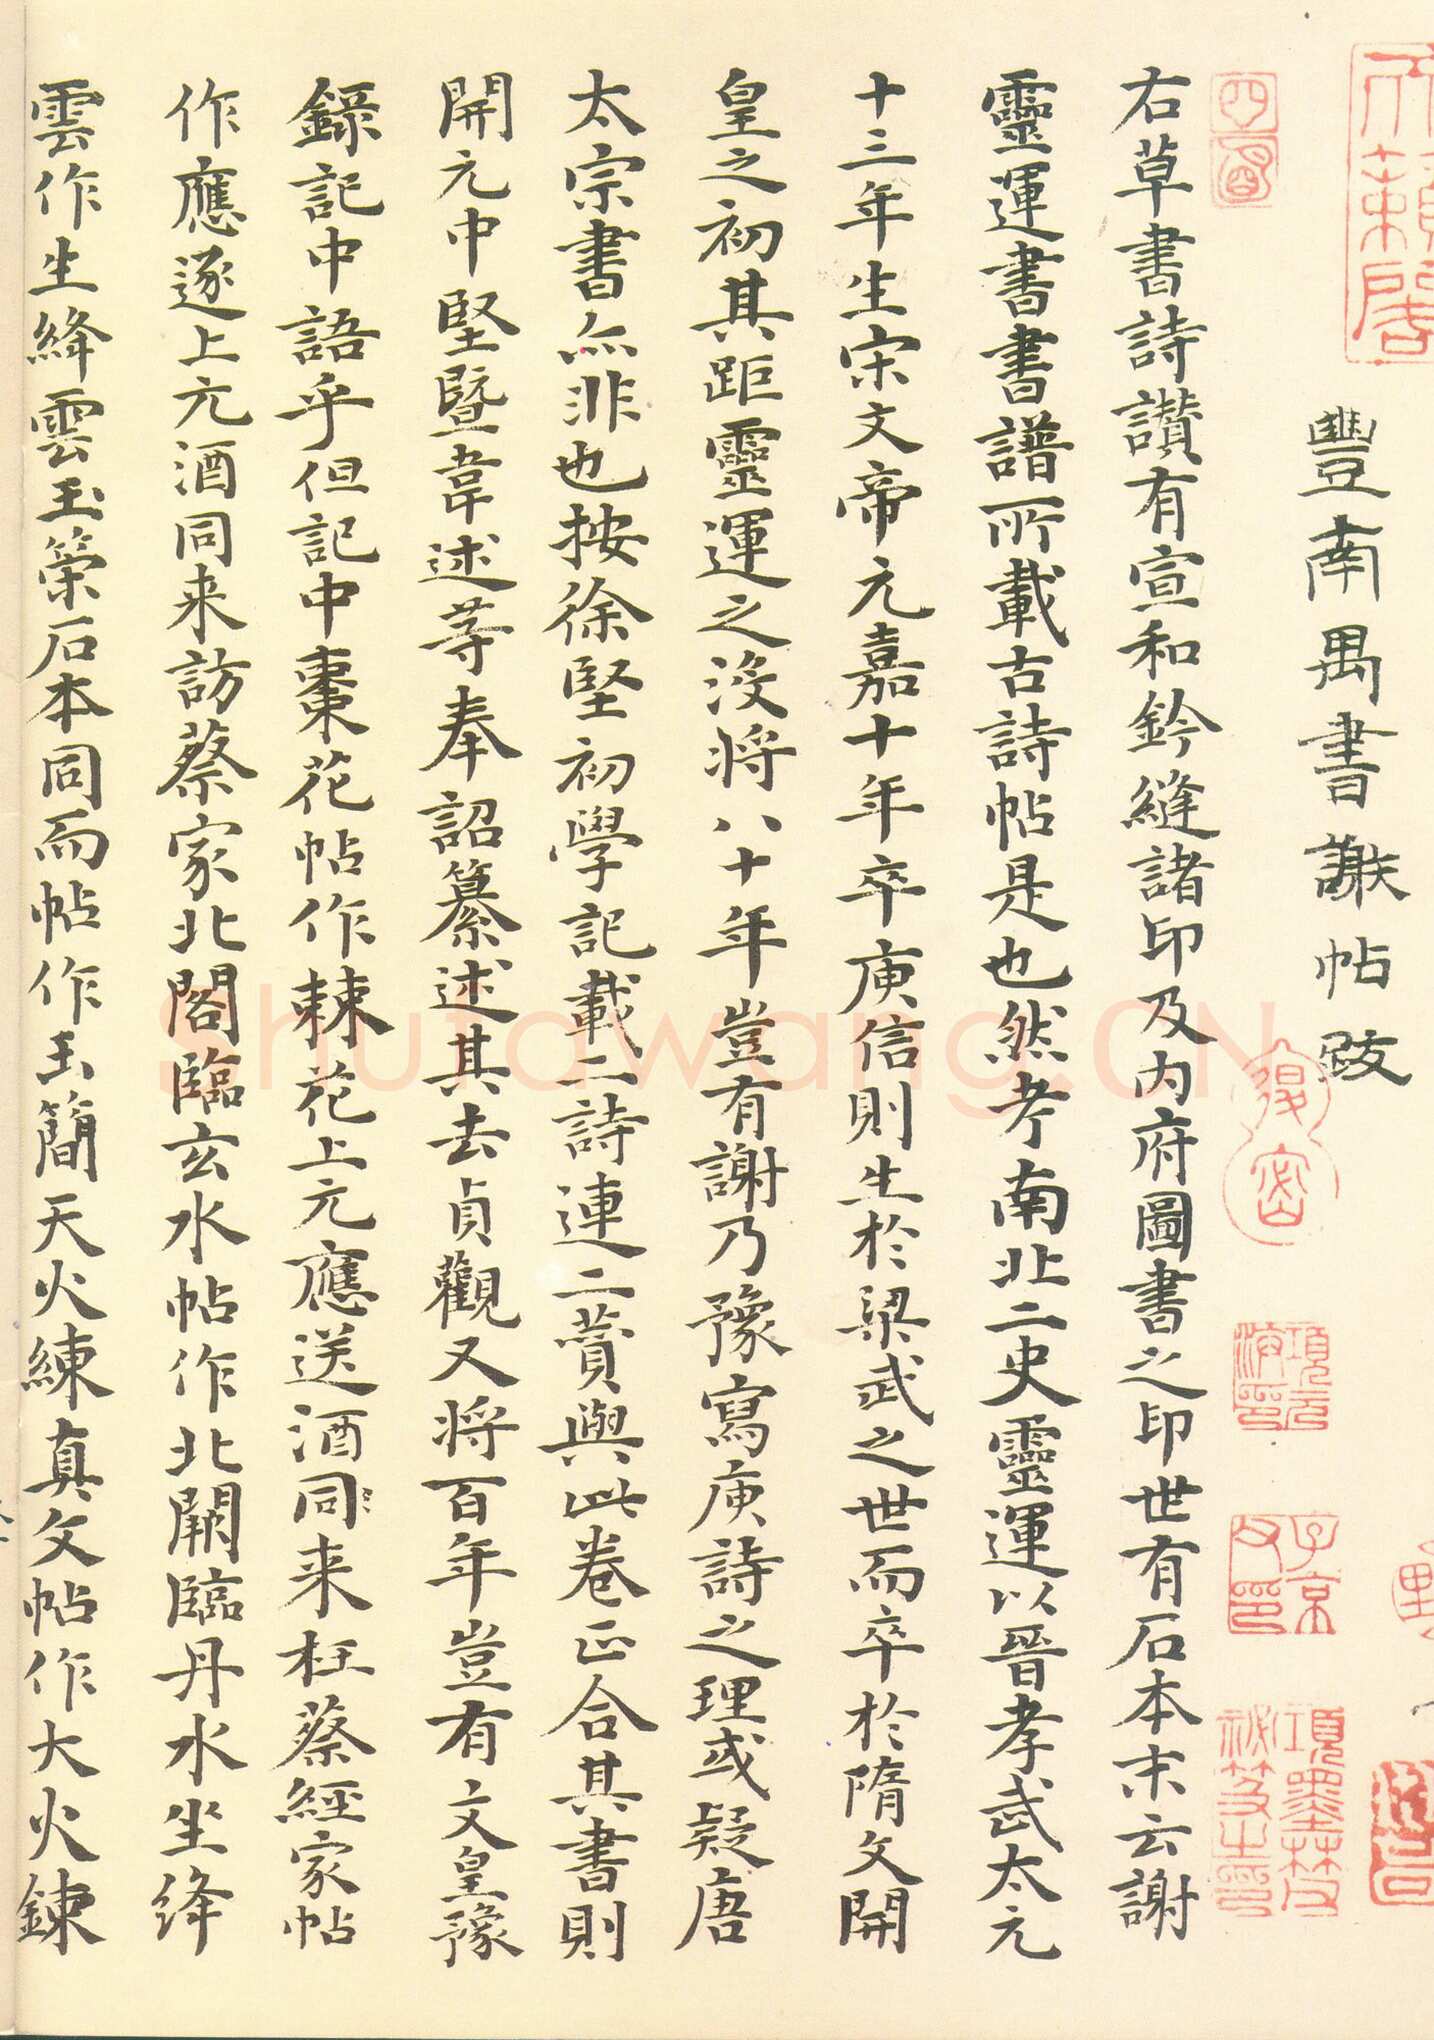 豐南禺書謝帖跋
右草書詩讚有宣和鈐縫諸印及內府圖書之印世有石本末云謝
靈運書書譜所載古詩帖是也然考南北二史靈運以晉孝武太元
十三年生宋文帝元嘉十年卒庾信則生於梁武之世而卒於隋文開
皇之初其距靈運之沒將八十年豈有謝乃豫寫庾詩之理或疑唐
太宗書亦非也按徐堅初學記載二詩連二賛與此卷正合其書則
開元中堅暨韋述等奉詔纂述其去貞觀又將百年豈有文皇豫
錄記中語乎但記中棗花帖作棘花上元應送酒同来枉蔡經家帖
作應逐上元酒同来訪蔡家北閣臨玄水帖作北闕臨丹水坐絳
雲作生絳雲玉策石本同而帖作玉簡天火練真文帖作大火鍊
四
項元
汴印
子京
父印
項墨林父
祕笈之印
天籟閣
shufawang.CN